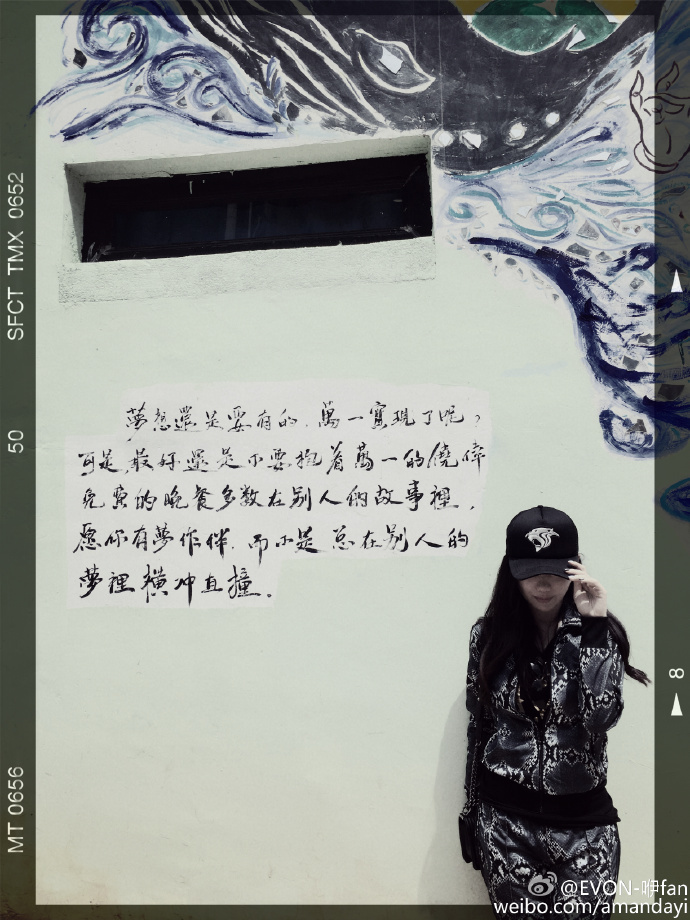 SFCT TMX 0652
50
MT 0656
夢想還是要有的，萬一實現了呢？
可是，最好還是不要抱着萬一的僥倖
免費的晚餐多数在别人的故事裡，
愿你有夢作伴，而不是总在别人的
夢裡横冲直撞。
8
@EVON-咿fan
weibo.com/amandayi